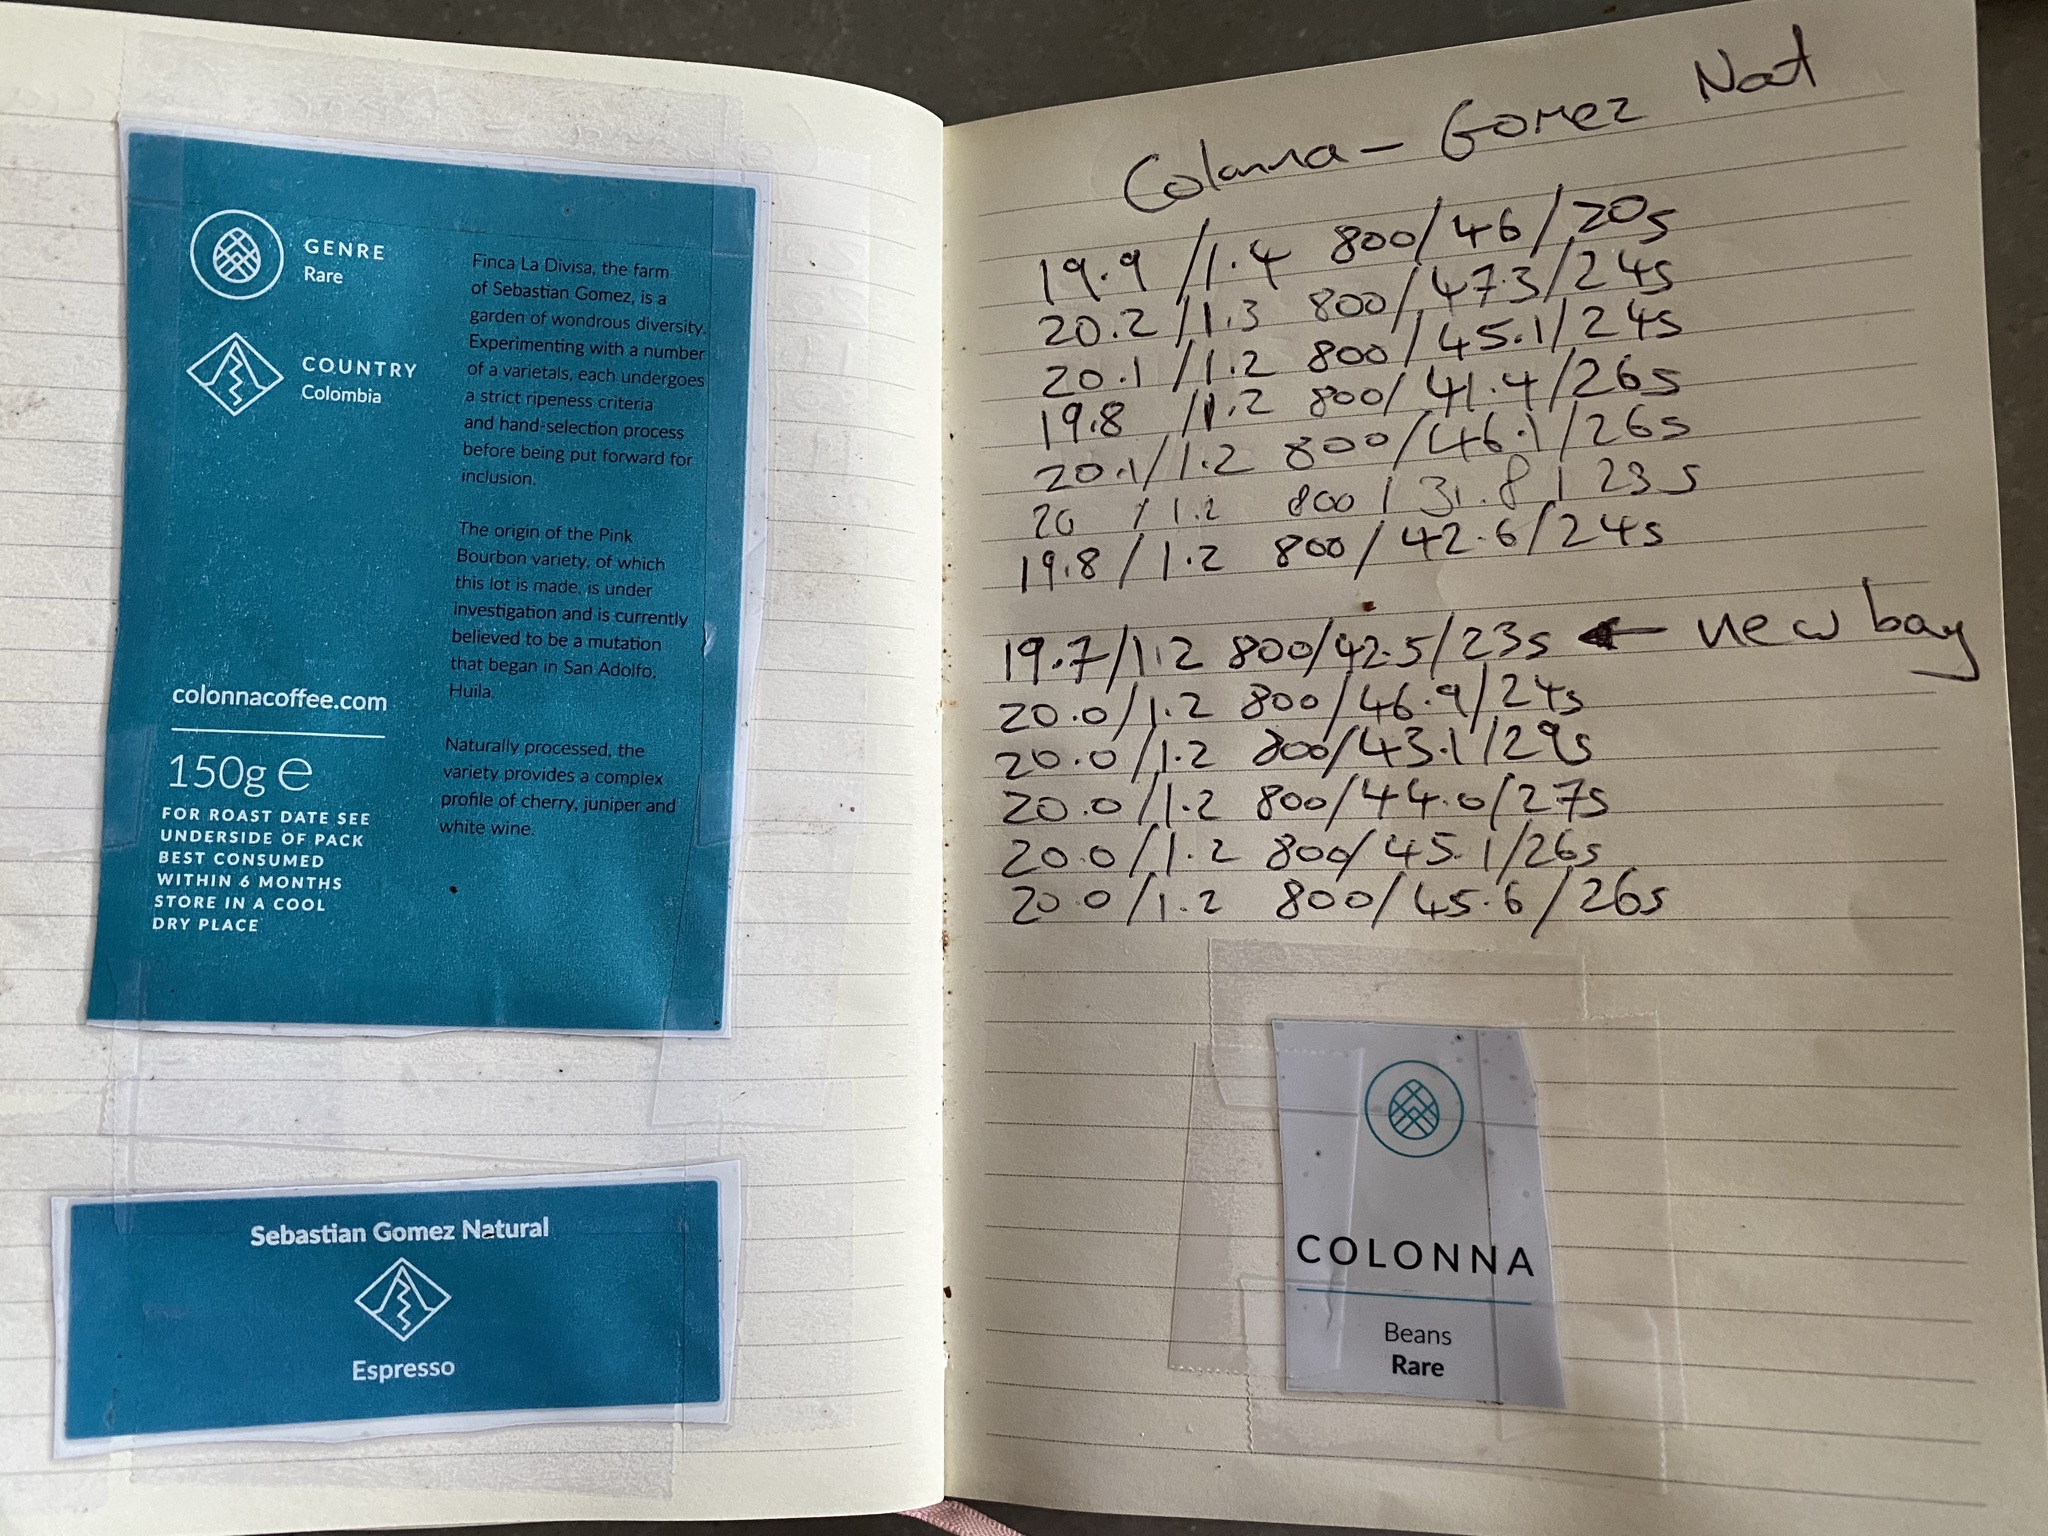 GENRE
Rare
COUNTRY
Colombia
colonnacoffee.com
150g ℮
FOR ROAST DATE SEE
UNDERSIDE OF PACK
BEST CONSUMED
WITHIN 6 MONTHS
STORE IN A COOL
DRY PLACE
Finca La Divisa, the farm
of Sebastian Gomez, is a
garden of wondrous diversity.
Experimenting with a number
of a varietals, each undergoes
a strict ripeness criteria
and hand-selection process
before being put forward for
inclusion.
The origin of the Pink
Bourbon variety, of which
this lot is made, is under
investigation and is currently
believed to be a mutation
that began in San Adolfo,
Huila.
Naturally processed, the
variety provides a complex
profile of cherry, juniper and
white wine.
Sebastian Gomez Natural
Espresso
Colonna - Gomez Nat
19.9 / 1.4 800/46/20s
20.2 / 1.3 800/47.3/24s
20.1 / 1.2 800/45.1/24s
19.8 / 1.2 800/41.4/26s
20.1/1.2 800/46.1/26s
20 / 1.2 800/31.8/23s
19.8/1.2 800/42.6/24s
19.7/1.2 800/42.5/23s ← new bag
20.0/1.2 800/46.9/24s
20.0/1.2 800/43.1/29s
20.0/1.2 800/44.0/27s
20.0/1.2 800/45.1/26s
20.0/1.2 800/45.6/26s
COLONNA
Beans
Rare